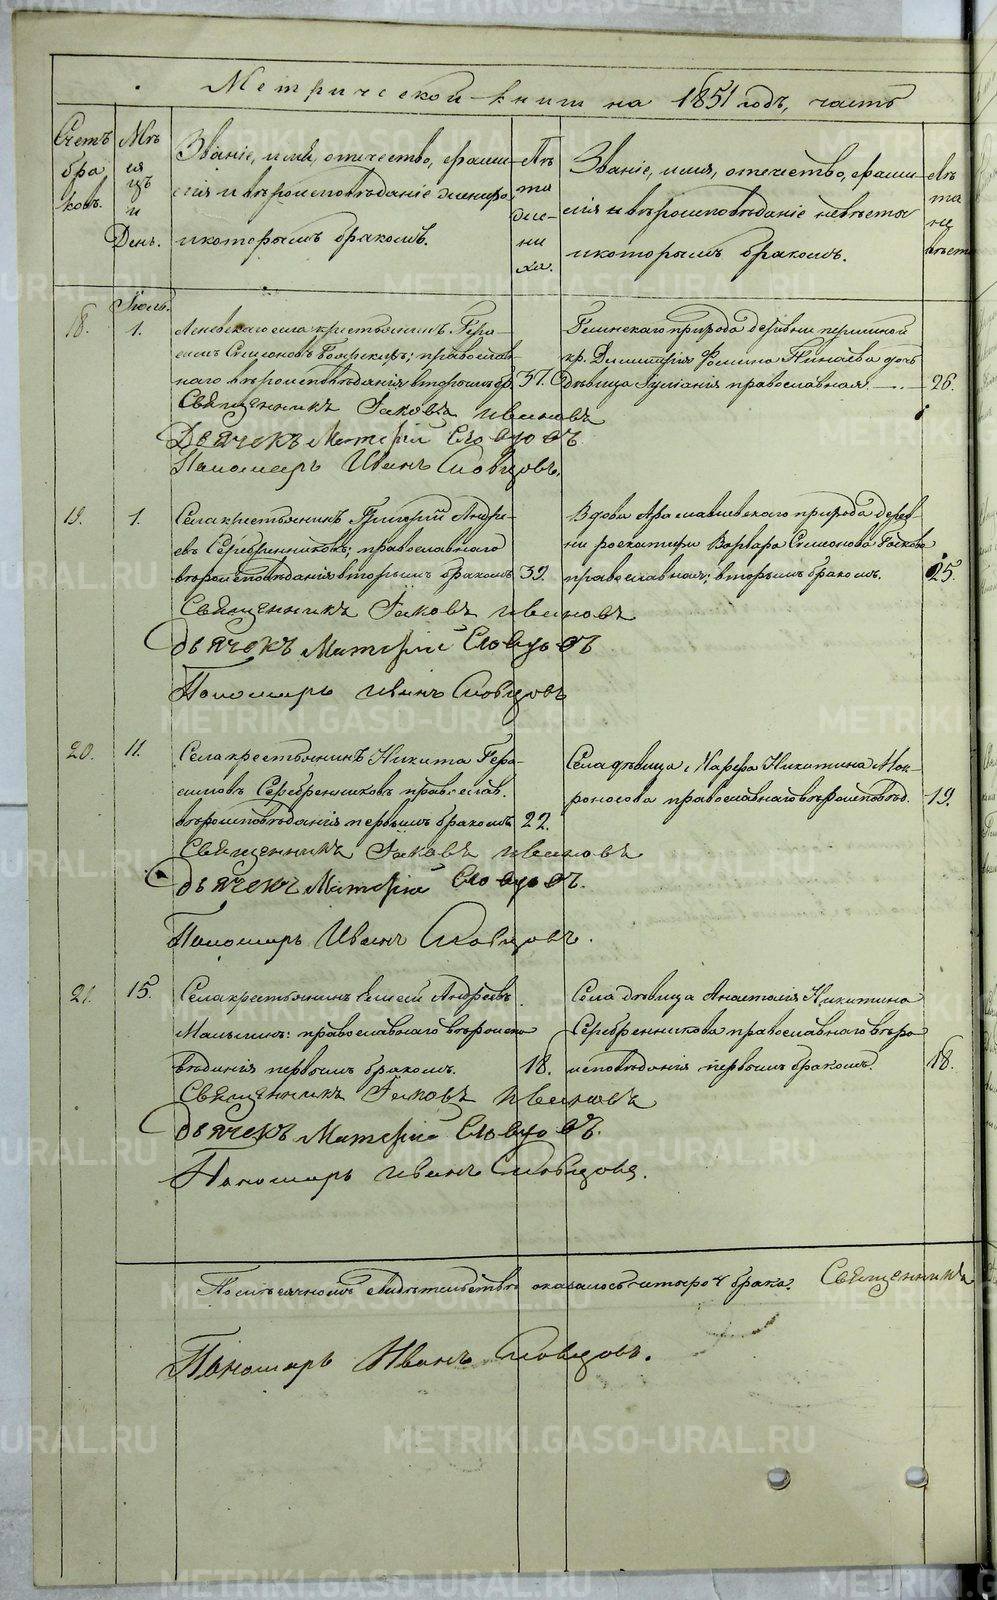 Метрической книги на 1851 годъ, часть
Счетъ браковъ.
Мѣсяцъ и День.
Званіе, имя, отчество, фамилія и вѣроисповѣданіе жениха, и которымъ бракомъ.
Лѣта жениха.
Званіе, имя, отчество, фамилія и вѣроисповѣданіе невѣсты и которымъ бракомъ.
Лѣта невѣсты
Іюль.
18. 1.
села крестьянинъ Гера-
симъ Симеоновъ православ-
наго вѣроисповѣданія вторымъ бр. 37.
прихода деревни
кр. Димитрія Фомина дочь
дѣвица Іуліанія православная 26.
Священникъ Іаковъ Ивановъ
Дьячекъ Словцовъ.
Пономарь Иванъ Словцовъ.
19. 1.
Села крестьянинъ Григорій Андре-
евъ Серебренниковъ; православнаго
вѣроисповѣданія вторымъ бракомъ 39.
Вдова прихода дерев-
ни Варвара Симеонова
православная; вторымъ бракомъ. 25.
Священникъ Іаковъ Ивановъ
Дьячекъ Словцовъ
Пономарь Иванъ Словцовъ
20. 11.
Села крестьянинъ Никита Гера-
симовъ Серебренниковъ православ.
вѣроисповѣданія первымъ бракомъ 22.
Села дѣвица Марфа Никитина Мок-
роносова православнаго вѣроисповѣд. 19.
Священникъ Іаковъ Ивановъ
Дьячекъ Словцовъ.
Пономарь Иванъ Словцовъ.
21. 15.
Села крестьянинъ Елисей Андреевъ
православнаго вѣроиспо-
вѣданія первымъ бракомъ. 18.
Села дѣвица Анастасія Никитина
Серебренникова православнаго вѣро-
исповѣданія первымъ бракомъ. 18.
Священникъ Іаковъ Ивановъ
Дьячекъ Словцовъ.
Пономарь Иванъ Словцовъ.
По мѣсячномъ свидѣтельствѣ оказалось четыре 4 брака. Священникъ
Пономарь Иванъ Словцовъ.
METRIKI.GASO-URAL.RU